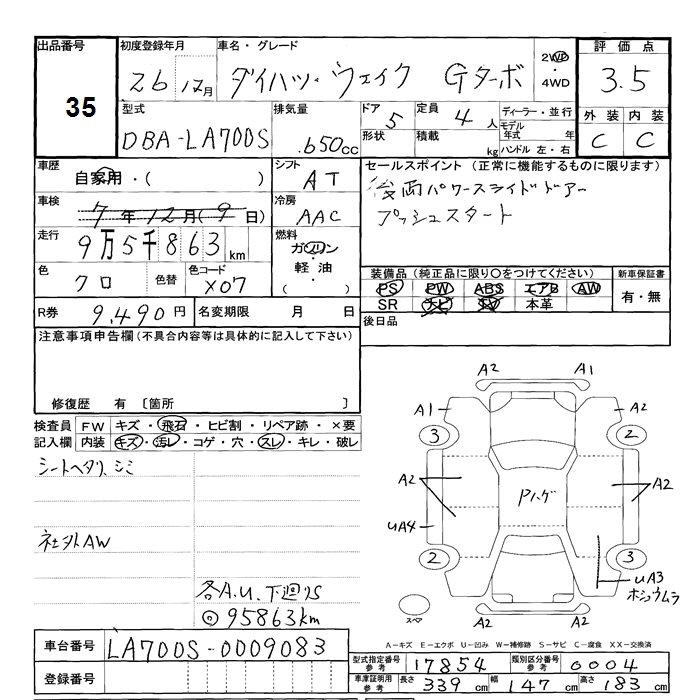 出品番号 35
初度登録年月 26 12月
車名・グレード ダイハツ・ウェイク Gターボ
2WD 4WD
評価点 3.5
外装 C 内装 C
型式 DBA-LA700S
排気量 .650cc
ドア形状 5
定員 4人
積載 kg
ディーラー・並行
モデル年式 年
ハンドル 左・右
車歴 自家用・( )
シフト AT
車検 7年12月(9日)
冷房 AAC
走行 9万5千863km
燃料 ガソリン・軽油・( )
色 クロ
色替
色コード X07
R券 9,490円
名変期限 月 日
セールスポイント (正常に機能するものに限ります)
後両パワースライドドアー
プッシュスタート
装備品 (純正品に限り○をつけてください)
新車保証書 有・無
PS PW ABS エアB AW
SR ナビ 本革
後日品
注意事項申告欄(不具合内容等は具体的に記入して下さい)
修復歴 有 〔箇所 〕
検査員記入欄
FW キズ・飛石・ヒビ割・リペア跡・×要
内装 キズ・汚レ・コゲ・穴・スレ・キレ・破レ
シートヘタリ、シミ
社外AW
各A.U.下廻りS
◎95863km
A2 A1
A1 A2
3 2
A2 Pハゲ A2
uA4
2 3
uA3
ホシュウムラ
スペア
A2 A2
A-キズ E-エクボ U-凹み W-補修跡 S-サビ C-腐食 XX-交換済
車台番号 LA700S-0009083
登録番号
型式指定番号参考 17854
類別区分番号参考 0004
車庫証明用参考 長さ 339cm 幅 147cm 高さ 183cm